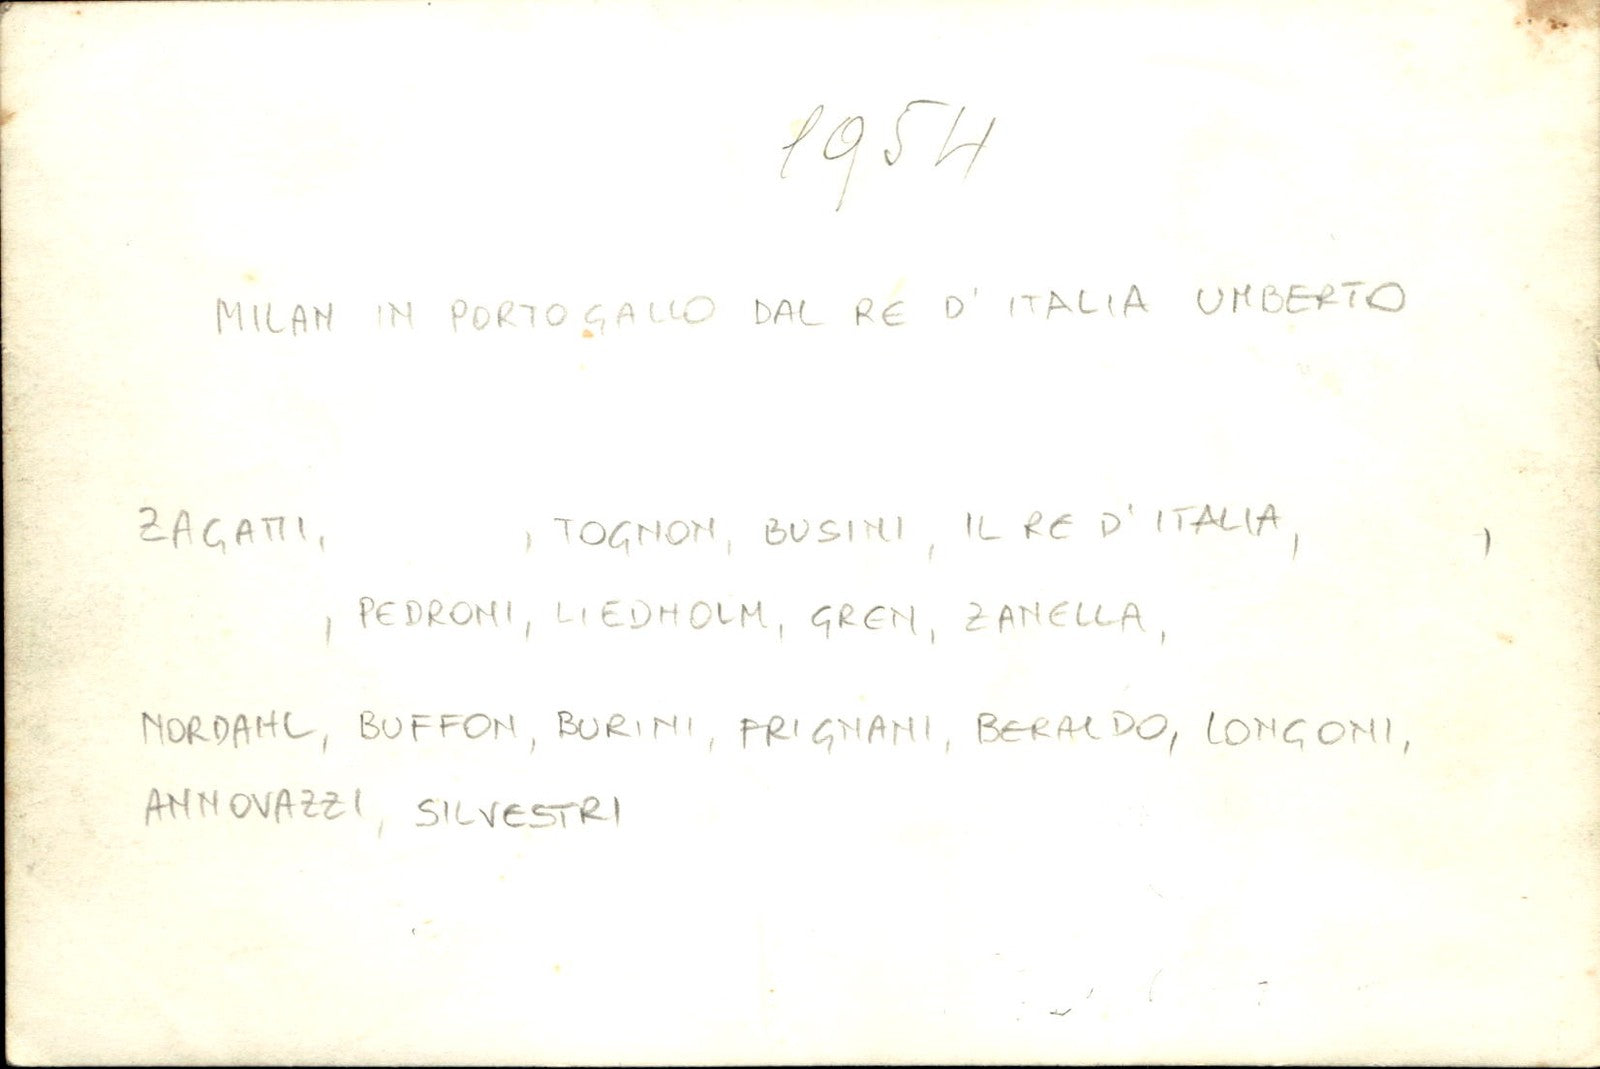 1954
MILAN IN PORTOGALLO DAL RE D'ITALIA UMBERTO
ZAGATTI, , TOGNON, BUSINI, IL RE D'ITALIA, ,
, PEDRONI, LIEDHOLM, GREN, ZANELLA,
NORDAHL, BUFFON, BURINI, FRIGNANI, BERALDO, LONGONI,
ANNOVAZZI, SILVESTRI